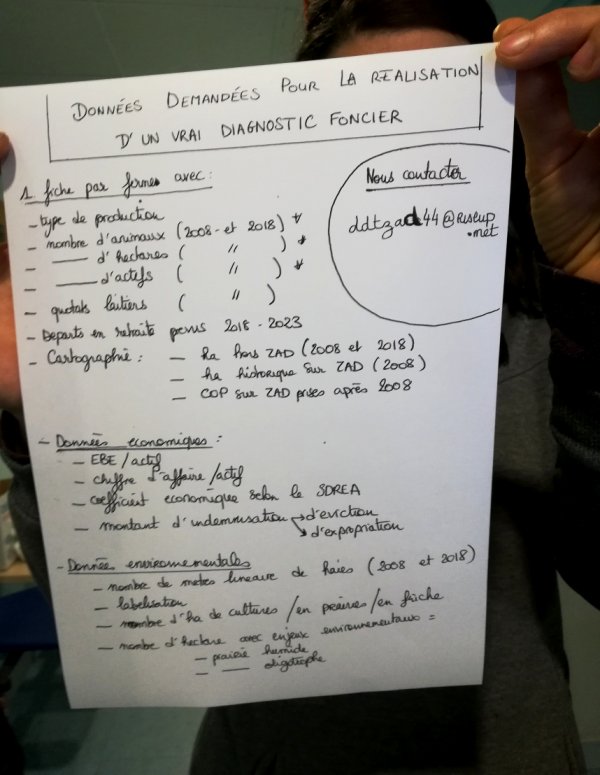 DONNÉES DEMANDÉES POUR LA REALISATION
D'UN VRAI DIAGNOSTIC FONCIER
1 fiche par fermes avec :
- type de production
- nombre d'animaux (2008 - et 2018) *
- —— d'hectares ( " ) *
- —— d'actifs ( " ) *
- quotats laitiers ( " )
- Departs en retraite prevus 2018 - 2023
- Cartographie : — ha hors ZAD (2008 et 2018)
— ha historique sur ZAD (2008)
— COP sur ZAD prises après 2008
Nous contacter
ddtzad44@riseup
.net
- Données economiques :
— EBE / actif
— chiffre d'affaire / actif
— coefficient economique selon le SDREA
— montant d'indemnisation → d'eviction
→ d'expropriation
- Données environnementales
— nombre de metres lineaire de haies (2008 et 2018)
— labelisation
— nombre d'ha de cultures / en prairies / en friche
— nombre d'hectare avec enjeux environnementaux =
— prairie humide
— —— oligotrophe